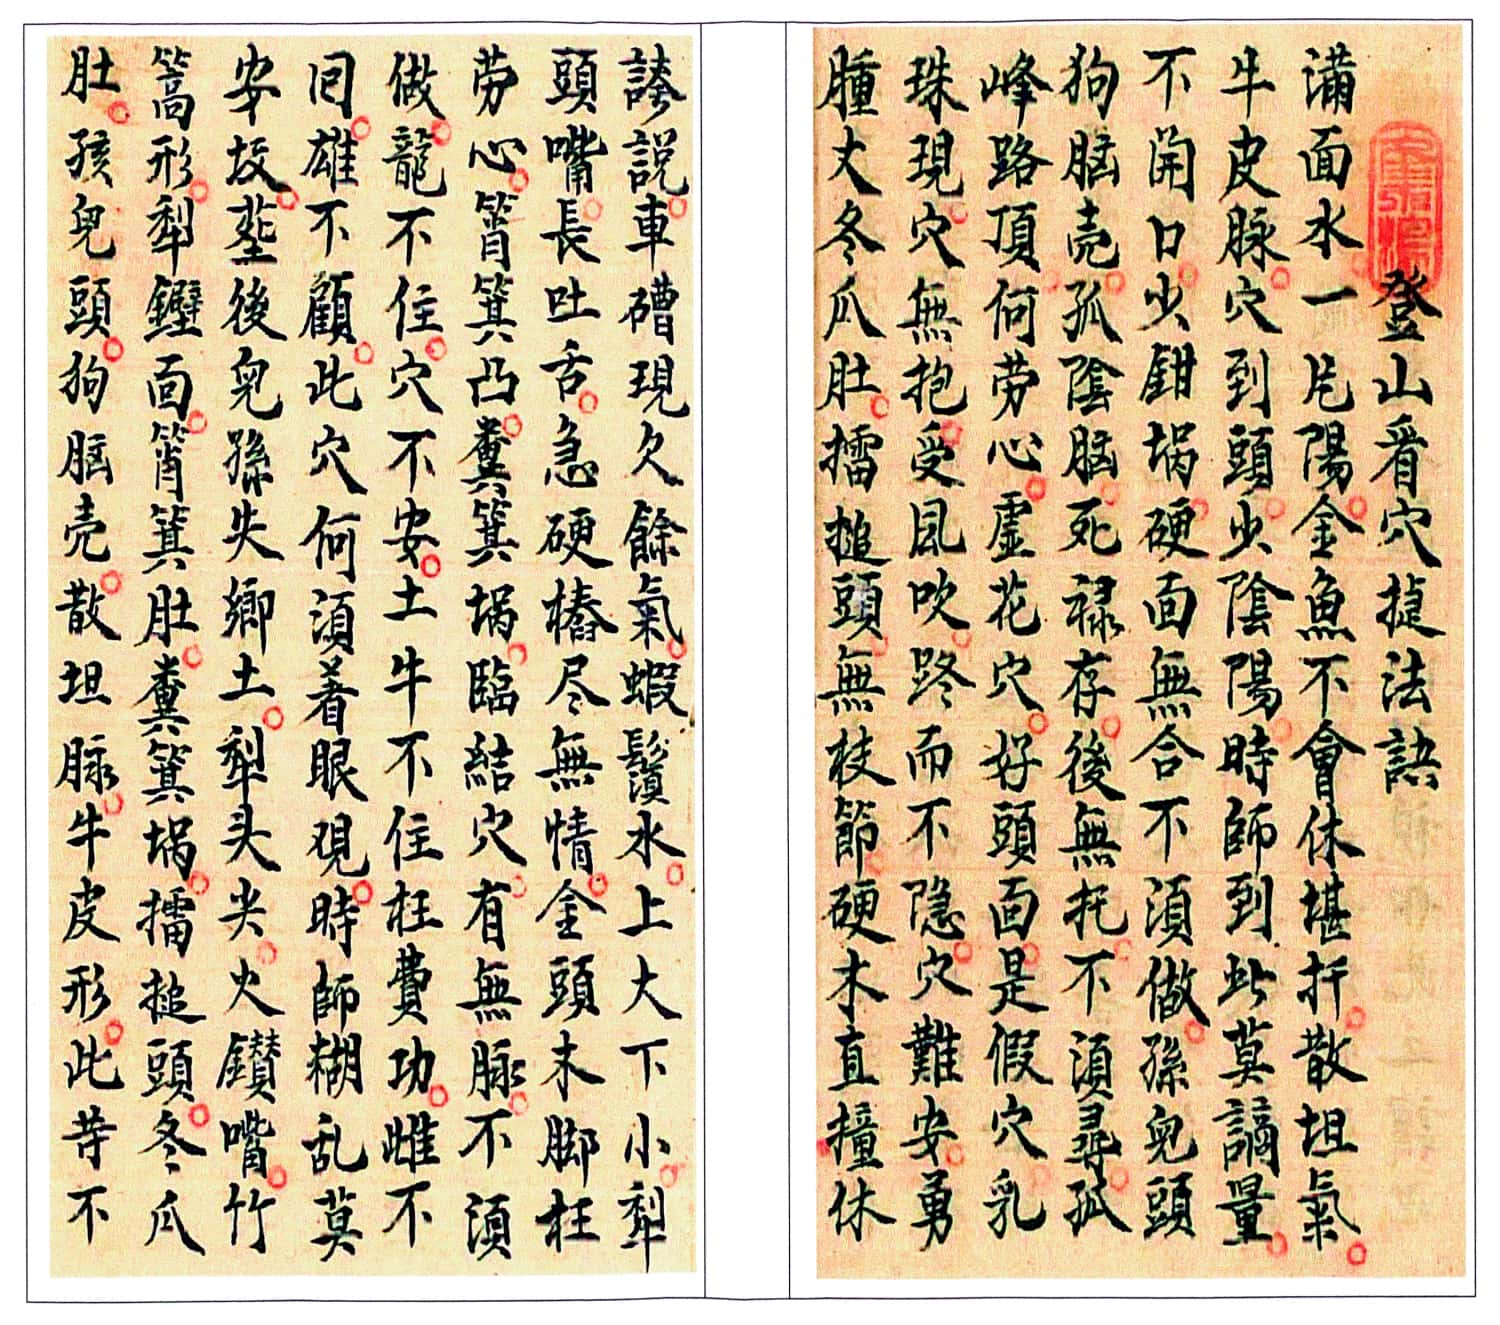 登山看穴捷法訣
滿面水一片陽金魚不會休堪扦散坦氣
牛皮脉穴到頭少陰陽時師到此莫謫量
不開口少鉗堝硬面無合不湏做孫兒頭
狗腦壳孤陰腦死禄存後無托不湏尋孤
峰路頂何劳心虛花穴好頭面是假穴乳
珠現穴無抱受風吹跎而不隐穴難安勇
腫丈冬瓜肚擂搥頭無枝節硬木直撞休
誇説車礄現欠餘氣蝦鬚水上大下小犁
頭嘴長吐舌急硬樁尽無情金頭木脚枉
劳心筲箕凸糞箕堝臨結穴有無脉不湏
做龍不住穴不安土牛不住枉費功雌不
囘雄不顧此穴何湏着眼观時師糊乱莫
安坟塟後兒孫失鄉土犁头尖火鑚嘴竹
篙形犁鐴面筲箕肚糞箕堝擂搥頭冬瓜
肚孩兒頭狗腦壳散坦脉牛皮形此苛不